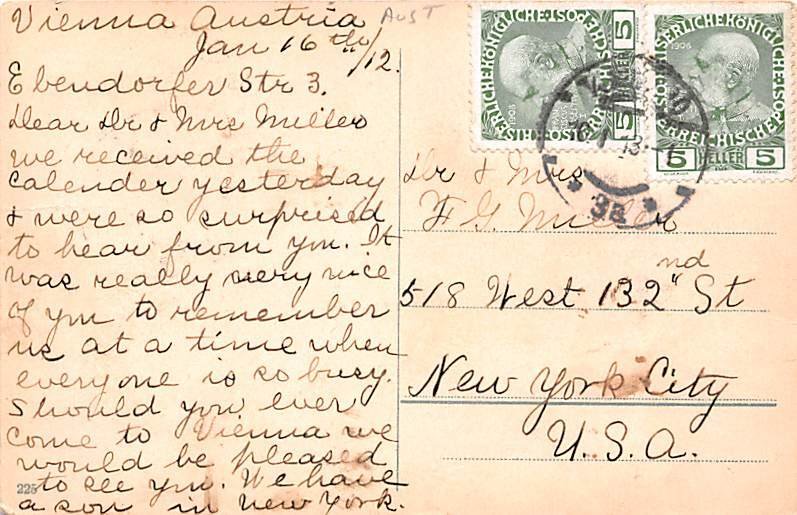 Vienna Austria
AUST
Jan 16th/12.
Ebendorfer Str 3.
Dear Dr & Mrs Miller
we received the
calender yesterday
& were so surprised
to hear from you. It
was really very nice
of you to remember
us at a time when
everyone is so busy.
Should you ever
come to Vienna we
would be pleased
to see you. We have
a son in new York.
225
KAISERLICHE KÖNIGLICHE ÖSTERREICHISCHE POST
1908
5 HELLER 5
KAISERLICHE KÖNIGLICHE ÖSTERREICHISCHE POST
1908
5 HELLER 5
Dr & Mrs
F G Miller
518 West 132nd St
New York City
U.S.A.